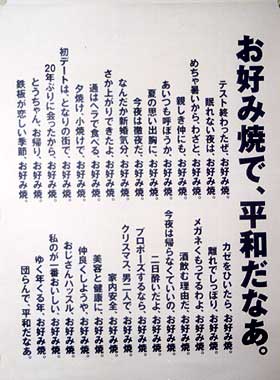 お好み焼で、平和だなあ。
テスト終わったぜ、お好み焼。
眠れない夜は、お好み焼。
めちゃ暑いから、わざと、お好み焼。
親しき仲にも、お好み焼。
あいつも呼ぼうか、お好み焼。
夏の思い出胸に、お好み焼。
今夜は徹夜だ、お好み焼。
なんだか新婚気分、お好み焼。
さか上がりできたよ、お好み焼。
通はヘラで食べる、お好み焼。
夕焼け、小焼けで、お好み焼。
初デートは、となりの街で、お好み焼。
20年ぶりに会ったから、お好み焼。
とうちゃん、お帰り、お好み焼。
鉄板が恋しい季節、お好み焼。
カゼをひいたら、お好み焼。
離れでしっぽり、お好み焼。
メガネくもってるわよ、お好み焼。
酒飲む理由だ、お好み焼。
今夜は帰らなくていいの、お好み焼。
二日酔いだよ、お好み焼。
プロポーズするなら、お好み焼。
クリスマス、男二人で、お好み焼。
家内安全、お好み焼。
美容と健康に、お好み焼。
仲良くしようや、お好み焼。
おじさんハッスル、お好み焼。
私のが一番おいしい、お好み焼。
ゆく年くる年、お好み焼。
団らんで、平和だなあ。